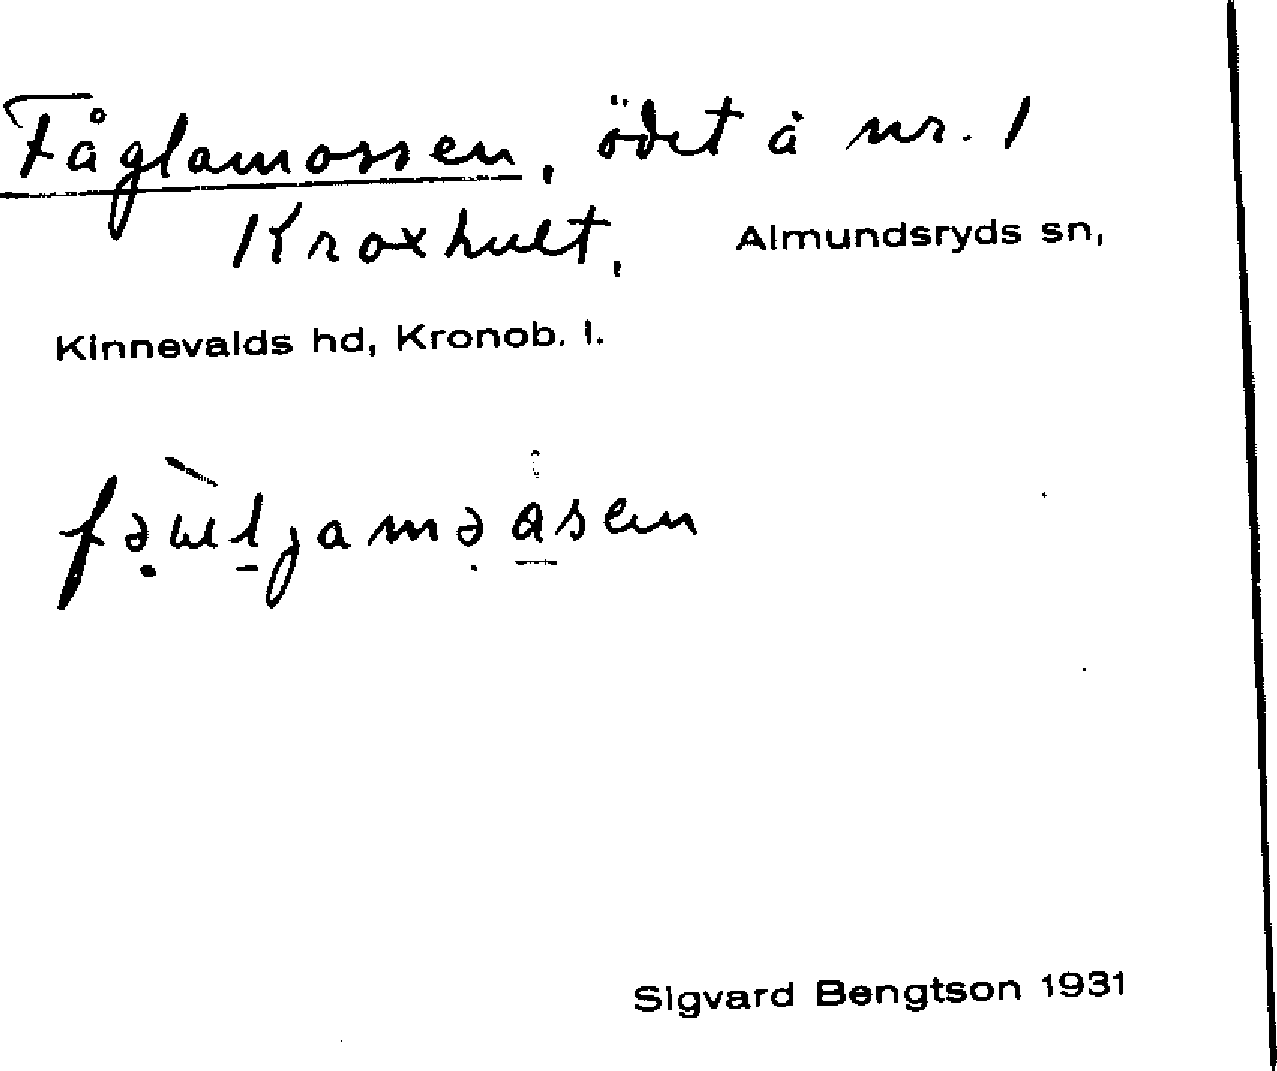 Fåglamossen, ödet å nr. 1
Kroxhult, Almundsryds sn,
Kinnevalds hd, Kronob. l.
Sigvard Bengtson 1931